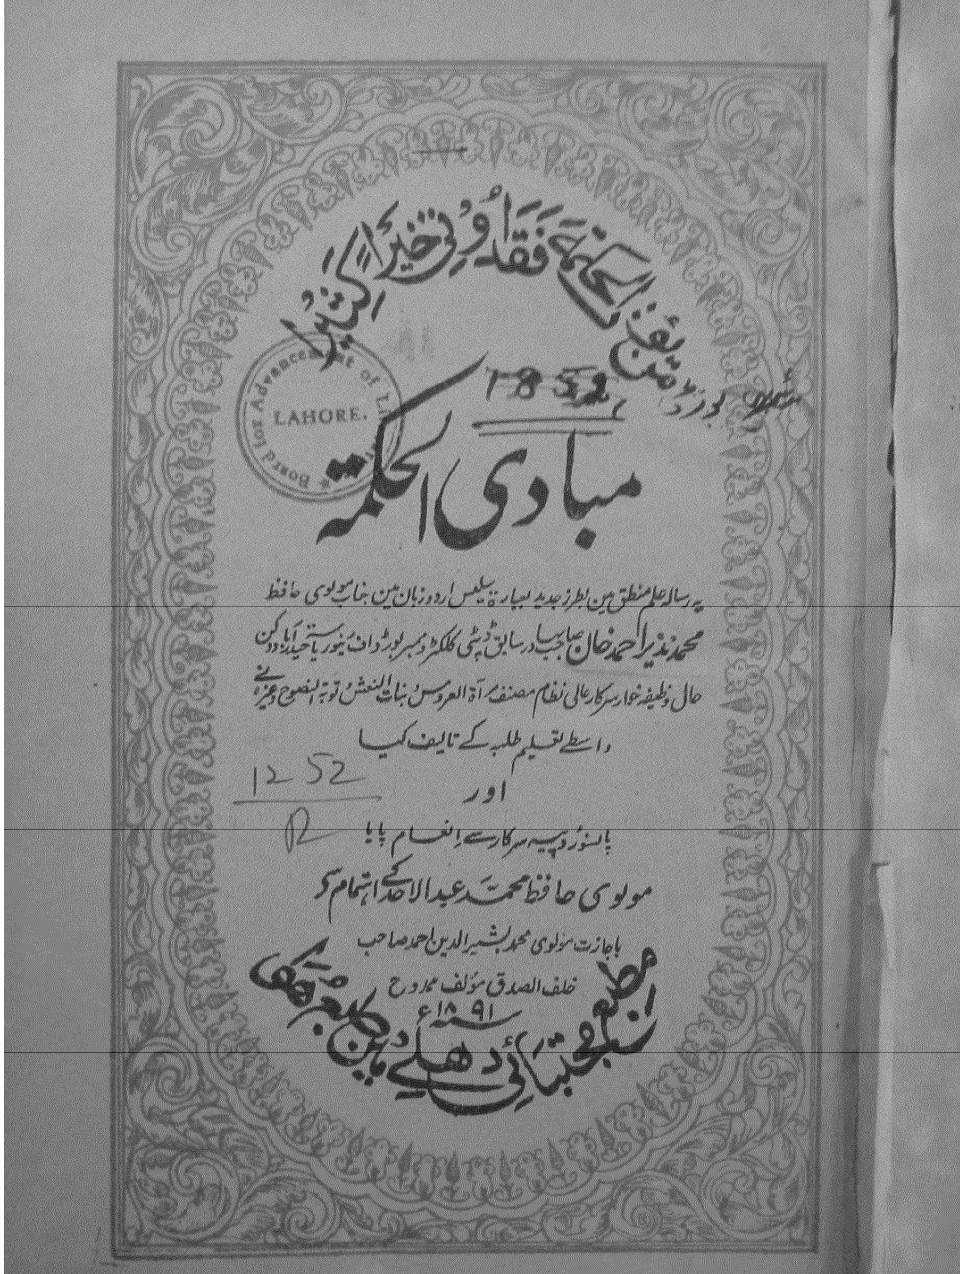 ومن یؤت الحکمة فقد اوتی خیرا کثیرا
Board for Advancement of
LAHORE.
1852
بورڈ
مبادی الحکمة
یہ رسالہ علم منطق مین بطرز جدید بعبارۃ سلیس اردو زبان مین جناب مولوی حافظ
محمد نذیر احمد خان صاحب بہادر سابق ڈپٹی کلکٹر و ممبر بورڈ اف رینیو ریاست حیدرآباد دکن
حال وظیفہ خوار سرکار عالی نظام مصنف مرآۃ العروس بنات النعش توبۃ النصوح وغیرہ نے
واسطے تعلیم طلبہ کے تالیف کیا
1252
اور
پانسو روپیہ سرکار سے انعام پایا
مولوی حافظ محمد عبدالاحد کے اہتمام سے
باجازت مولوی محمد بشیر الدین احمد صاحب
خلف الصدق مؤلف ممدوح
سنہ ۱۸۹۱ء
مطبع مجتبائی دهلی مین طبع هوئی